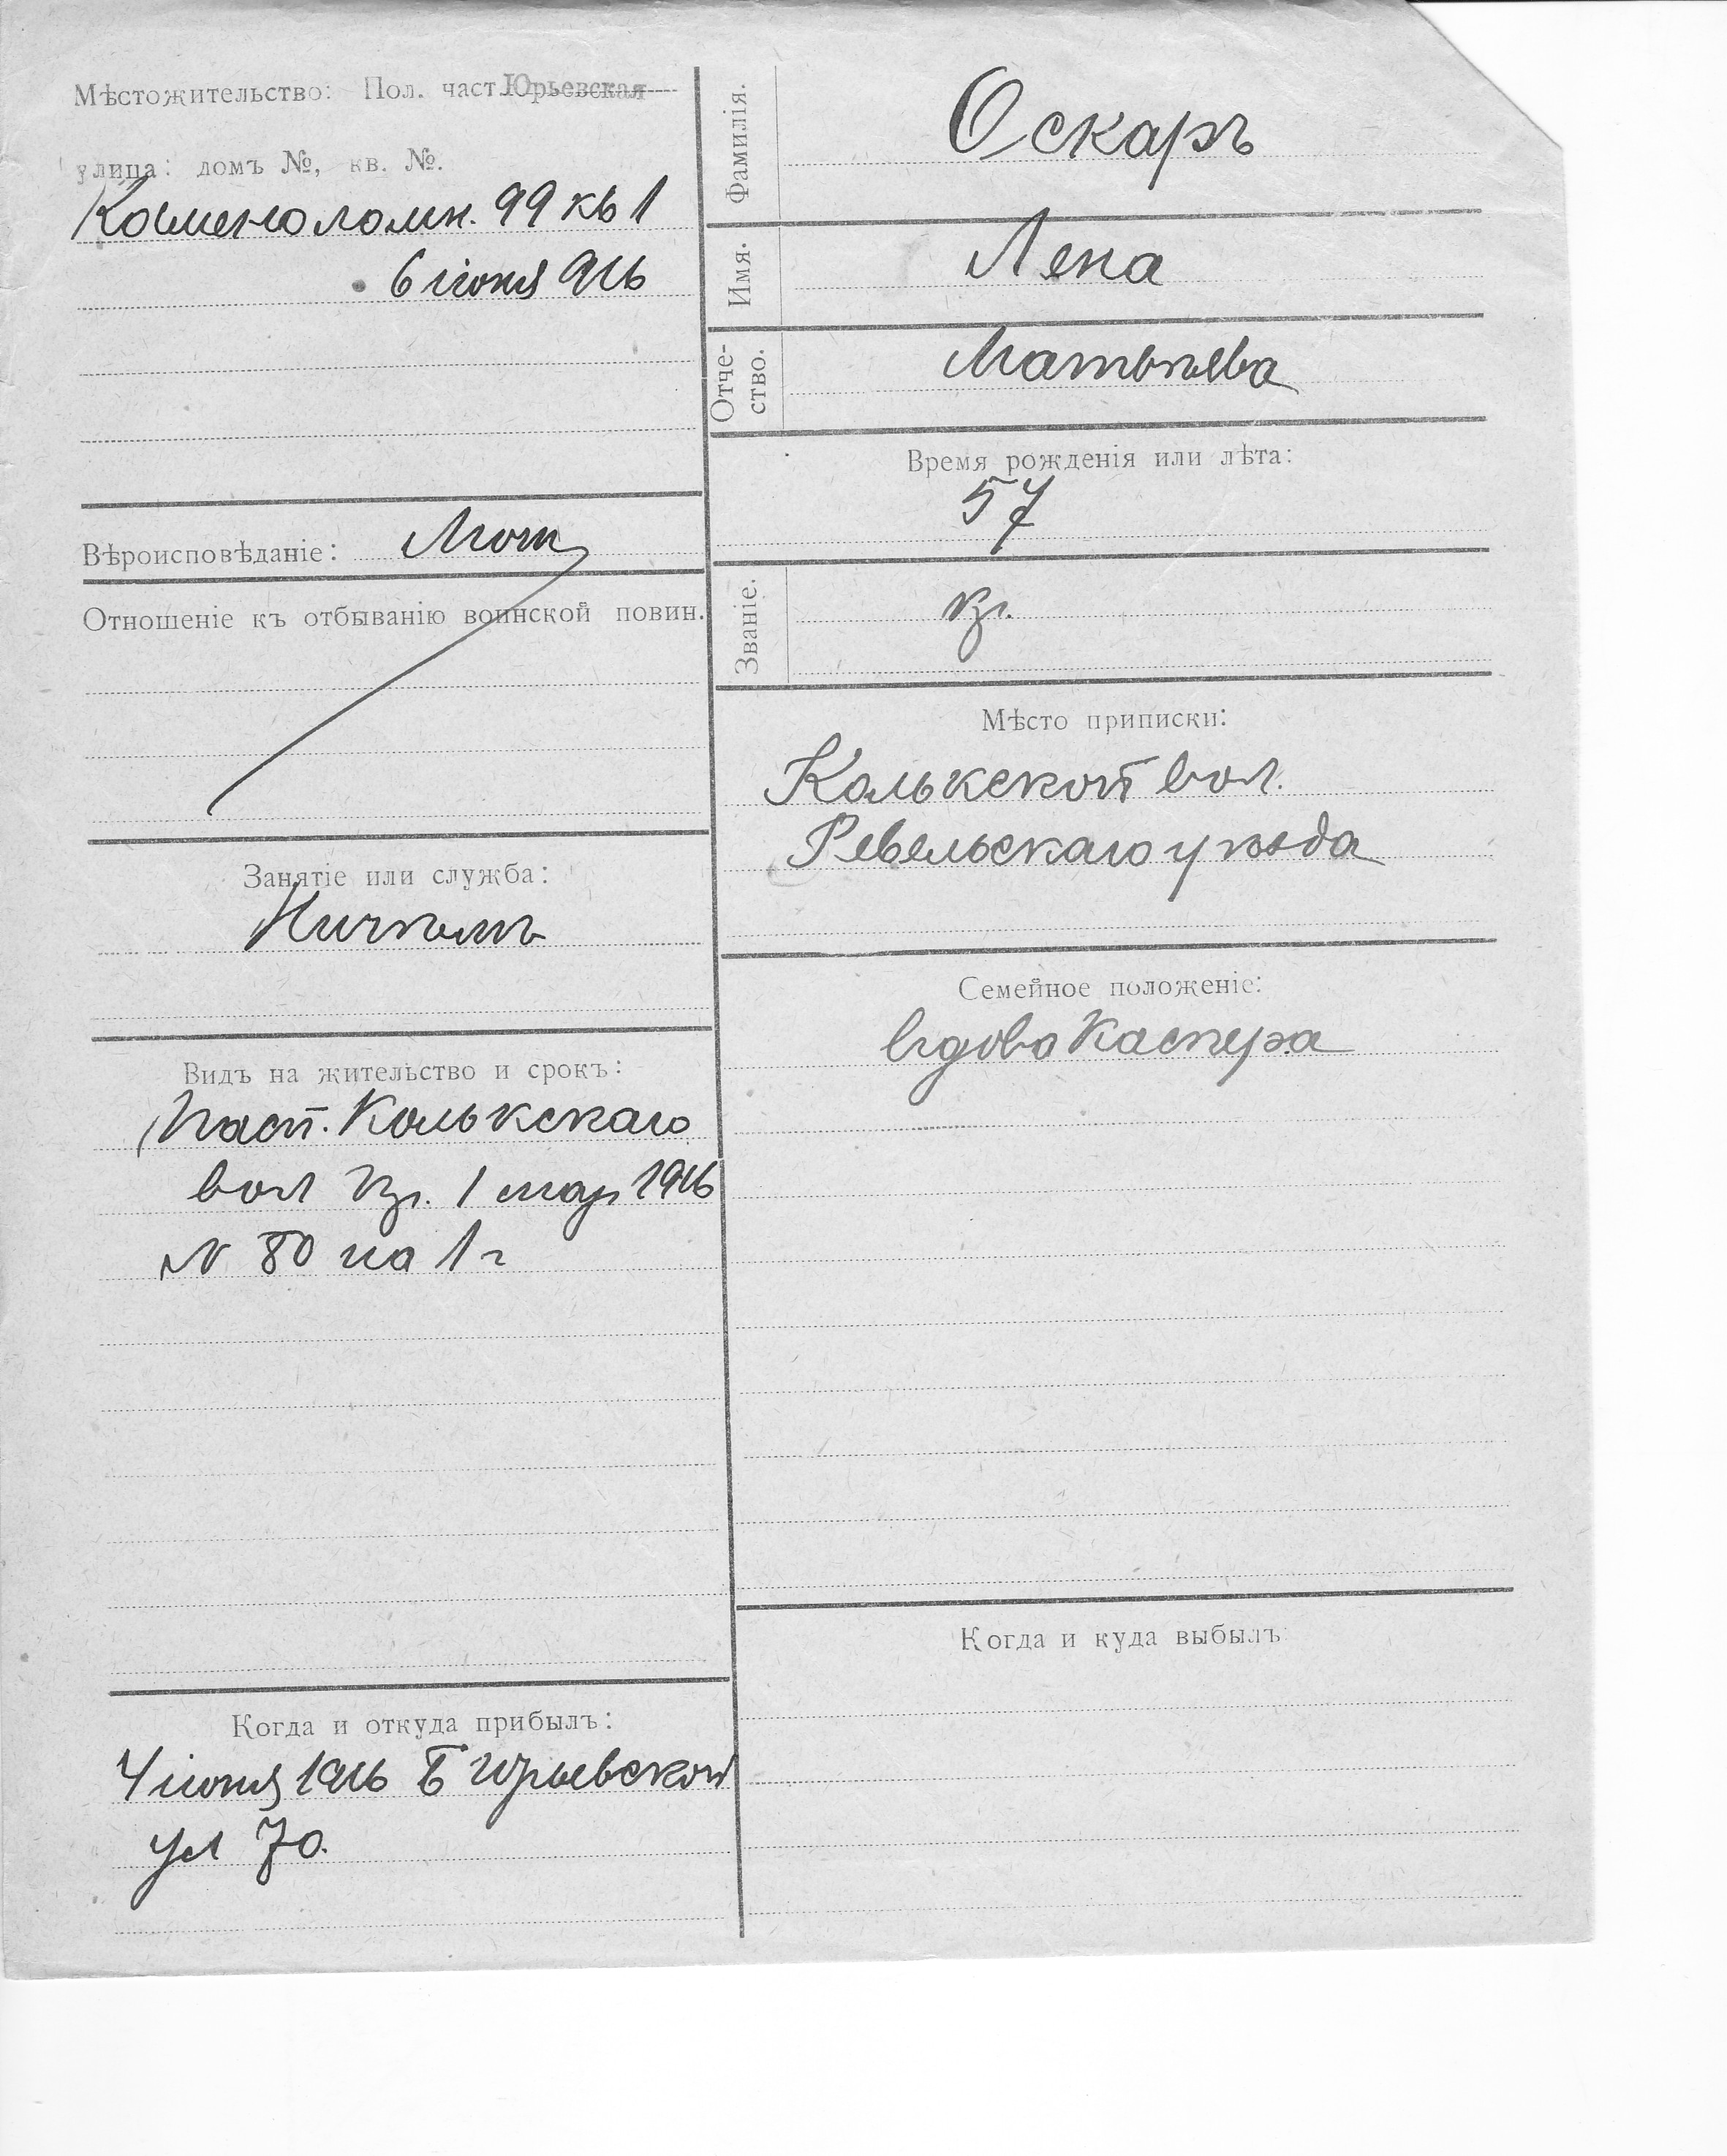 Мѣстожительство: Пол. част. Юрьевская
улица: домъ №, кв. №.
Каменоломн. 99 кв 1
6 іюня 916
Вѣроисповѣданіе: Лют
Отношеніе къ отбыванію воинской повин.
Занятіе или служба:
Ничѣмъ
Видъ на жительство и срокъ:
Пасп. Колькскаго
вол пр. 1 мар 1916
N 80 на 1 г
Когда и откуда прибылъ:
4 іюня 1916 Б Юрьевской
ул 70.
Фамилія.
Оскаръ
Имя.
Лена
Отче-
ство.
Матвѣева
Время рожденія или лѣта:
57
Званіе.
кр.
Мѣсто приписки:
Колькской вол.
Ревельскаго уѣзда
Семейное положеніе:
вдова Каспера
Когда и куда выбылъ: